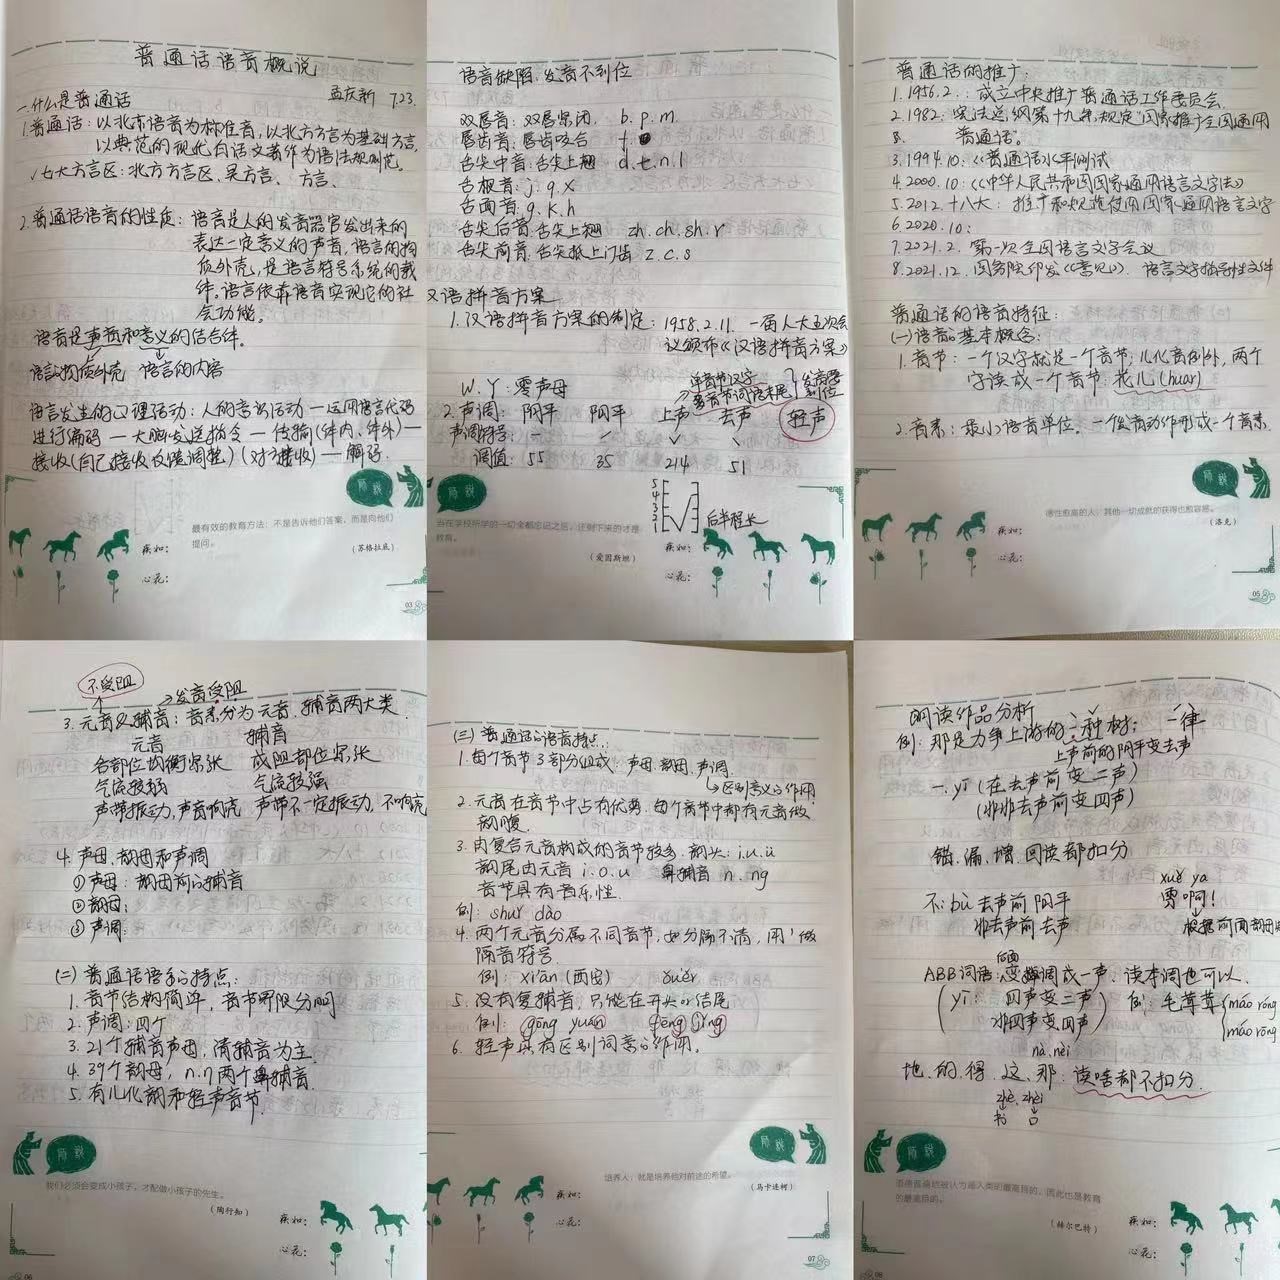 普通话语音概说
孟庆新 7.23.
一.什么是普通话
1.普通话：以北京语音为标准音，以北方方言为基础方言，
以典范的现代白话文著作为语法规范。
√七大方言区：北方方言区、吴方言、 方言、
2.普通话语音的性质：语言是人的发音器官发出来的
表达一定意义的声音，语言的物
质外壳，是语言符号系统的载
体。语言依靠语音实现它的社
会功能。
语音是声音和意义的结合体。
语言物质外壳 语言的内容
语言发生的心理活动：人的意识活动—运用语言代码
进行编码—大脑发送指令—传输(体内、体外)—
接收(自己接收反馈调整)(对方接收)—解码.
师说
最有效的教育方法：不是告诉他们答案，而是向他们
提问。
(苏格拉底)
疾如：
心花：
03
语音缺陷.发音不到位
双唇音：双唇紧闭. b. p. m.
唇齿音：唇齿咬合 f.
舌尖中音：舌尖上翘 d. t. n. l
舌根音：j. q. x
舌面音：g. k. h
舌尖后音：舌尖上翘 zh. ch. sh. r
舌尖前音：舌尖抵上门齿 z. c. s
汉语拼音方案
1.汉语拼音方案的制定：1958.2.11. 一届人大五次会
议颁布《汉语拼音方案》
W. Y：零声母
单音节汉字
多音节词语末尾
发音要到位
2.声调：阴平 阳平 上声 去声 轻声
声调符号：ˉ ˊ ˇ ˋ
调值：55 35 214 51
5
4
3
2
后半程长
师说
当在学校所学的一切全都忘记之后，还剩下来的才是
教育。
(爱因斯坦)
疾如：
心花：
普通话的推广：
1.1956.2.：成立中央推广普通话工作委员会.
2.1982：宪法总纲第十九条,规定"国家推广全国通用
普通话".
3.1994.10：《普通话水平测试
4.2000.10：《中华人民共和国国家通用语言文字法》
5.2012.十八大：推广和规范使用国家通用语言文字
6.2020.10：
7.2021.2. 第一次全国语言文字会议
8.2021.12. 国务院印发《意见》. 语言文字指导性文件
普通话的语音特征：
(一)语音的基本概念：
1.音节：一个汉字就是一个音节；儿化音例外，两个
字读成一个音节：花儿(huar)
2.音素：最小语音单位。一个发音动作形成一个音素.
师说
德性愈高的人，其他一切成就的获得也愈容易。
(洛克)
疾如：
心花：
05
不受阻
→发音受阻
3.元音&辅音：音素分为元音.辅音两大类.
元音 辅音
各部位均衡紧张 成阻部位紧张
气流较弱 气流较强
声带振动,声音响亮 声带不一定振动,不响亮
4.声母、韵母和声调
①声母：韵母前的辅音
②韵母：
③声调：
(二)普通话语音的特点：
1.音节结构简单，音节界限分明
2.声调：四个
3.21个辅音声母，清辅音为主.
4.39个韵母，n.η两个鼻辅音.
5.有儿化韵和轻声音节.
师说
我们必须会变成小孩子，才配做小孩子的先生。
(陶行知)
疾如：
心花：
06
(三)普通话的语音特点.：
1.每个音节3部分组成：声母.韵母.声调.
↳区别意义的作用
2.元音在音节中占有优势.每个音节中都有元音做
韵腹.
3.由复合元音构成的音节较多.韵头：i. u. ü
韵尾由元音 i. o. u 鼻辅音 n. ng
音节具有音乐性.
例：shuǐ dào
4.两个元音分属不同音节，如分隔不清，用'做
隔音符号.
例：xi'ān (西安) ǒu'ěr
5.没有复辅音，只能在开头or结尾
例： gōng yuán fēng jǐng
6.轻声具有区别词意的作用。
培养人，就是培养他对前途的希望。
(马卡连柯)
师说
疾如：
心花：
07
朗读作品分析
例：那是力争上游的一种树； 一律
上声前的阴平变去声
一.yī (在去声前变二声)
(非去声前变四声)
错、漏、增、回读都扣分
不：bù 去声前 阳平
非去声前 去声
xuě ya
雪啊!
根据前面韵母
ABB词语：后面变调成一声.读本调也可以.
(yī： 四声变二声
非四声变四声)
例：毛茸茸 máo róng
máo rōng
nà. nèi
地、的、得 这、那：读啥都不扣分.
zhè. zhèi
书 口
师说
道德普遍地被认为是人类的最高目的，因此也是教育
的最高目的。
(赫尔巴特)
疾如：
心花：
08